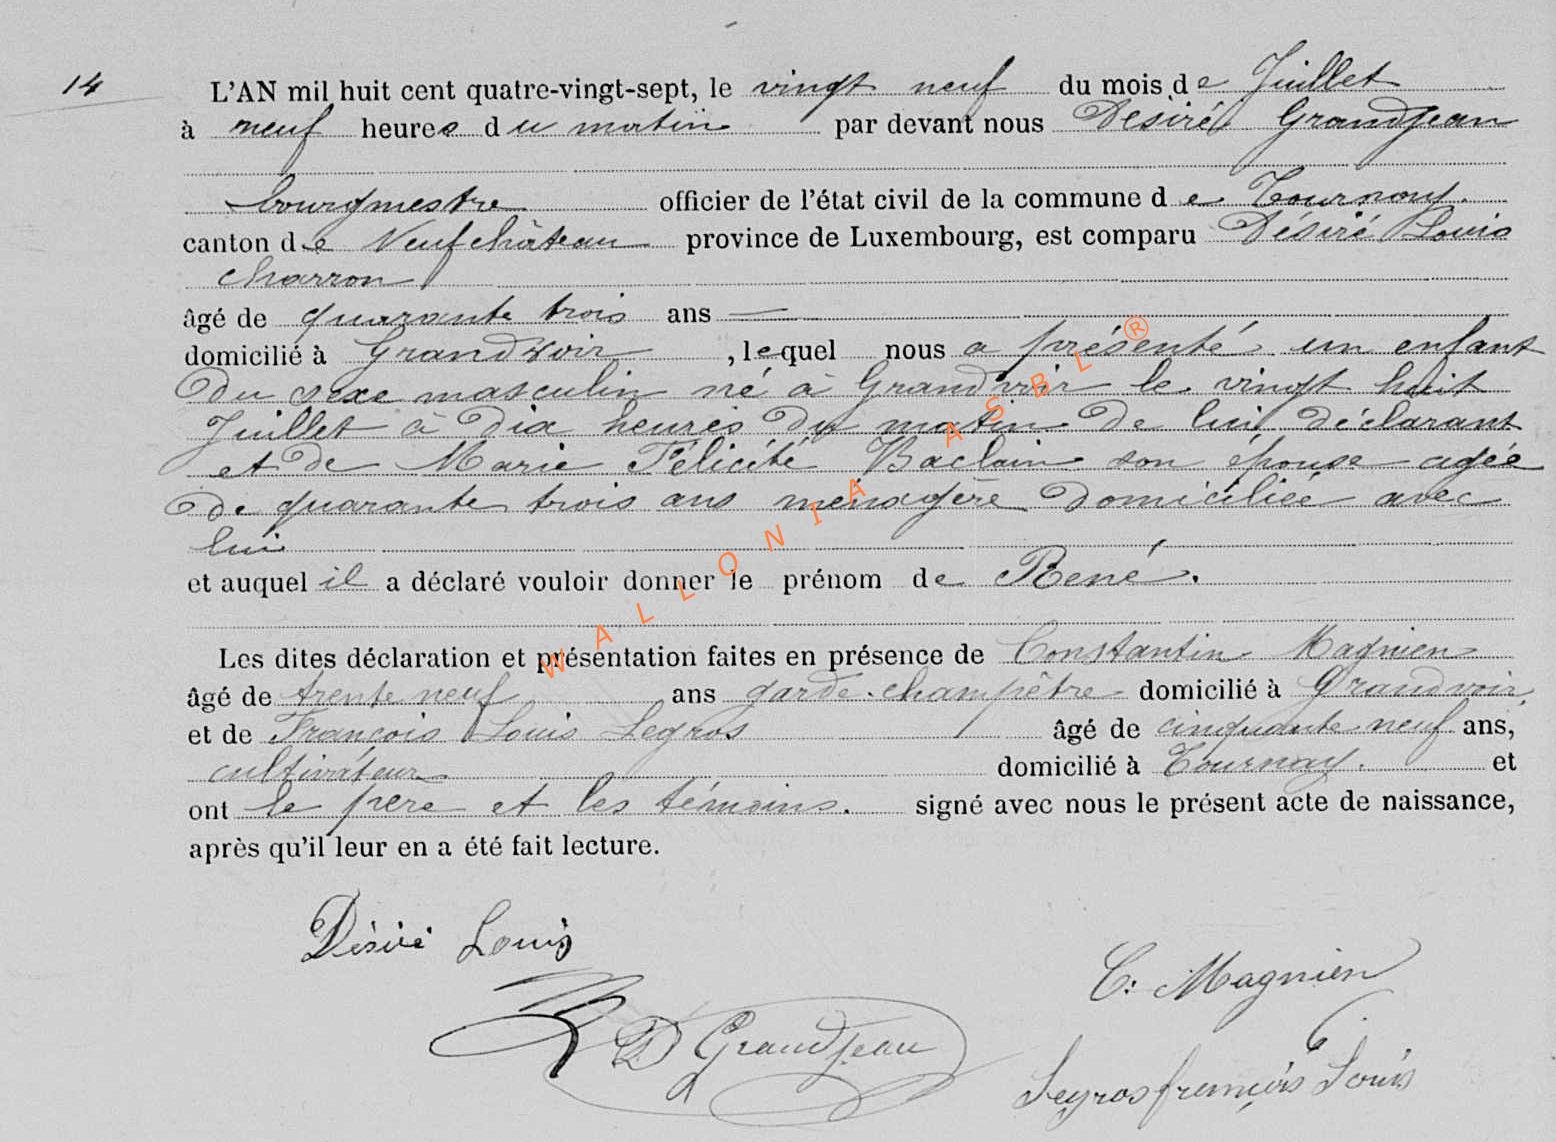 14
L'AN mil huit cent quatre-vingt-sept, le vingt neuf du mois de Juillet
à neuf heures du matin par devant nous Désiré Grandjean
bourgmestre officier de l'état civil de la commune de Tournay.
canton de Neufchâteau province de Luxembourg, est comparu Désiré Louis
charron
âgé de quarante trois ans —
domicilié à Grandvoir, lequel nous a présenté un enfant
du sexe masculin né à Grandvoir le vingt huit
Juillet à dix heures du matin de lui déclarant
et de Marie Félicité Baclain son épouse agée
de quarante trois ans ménagère domiciliée avec
lui
et auquel il a déclaré vouloir donner le prénom de René.
Les dites déclaration et présentation faites en présence de Constantin Magnien
âgé de trente neuf ans garde-champêtre domicilié à Grandvoir,
et de François Louis Legros âgé de cinquante neuf ans,
cultivateur domicilié à Tournay. et
ont le père et les témoins. signé avec nous le présent acte de naissance,
après qu'il leur en a été fait lecture.
Désiré Louis
C: Magnien
D Grandjean
Legros francois Louis
WALLONIA ASBL ®